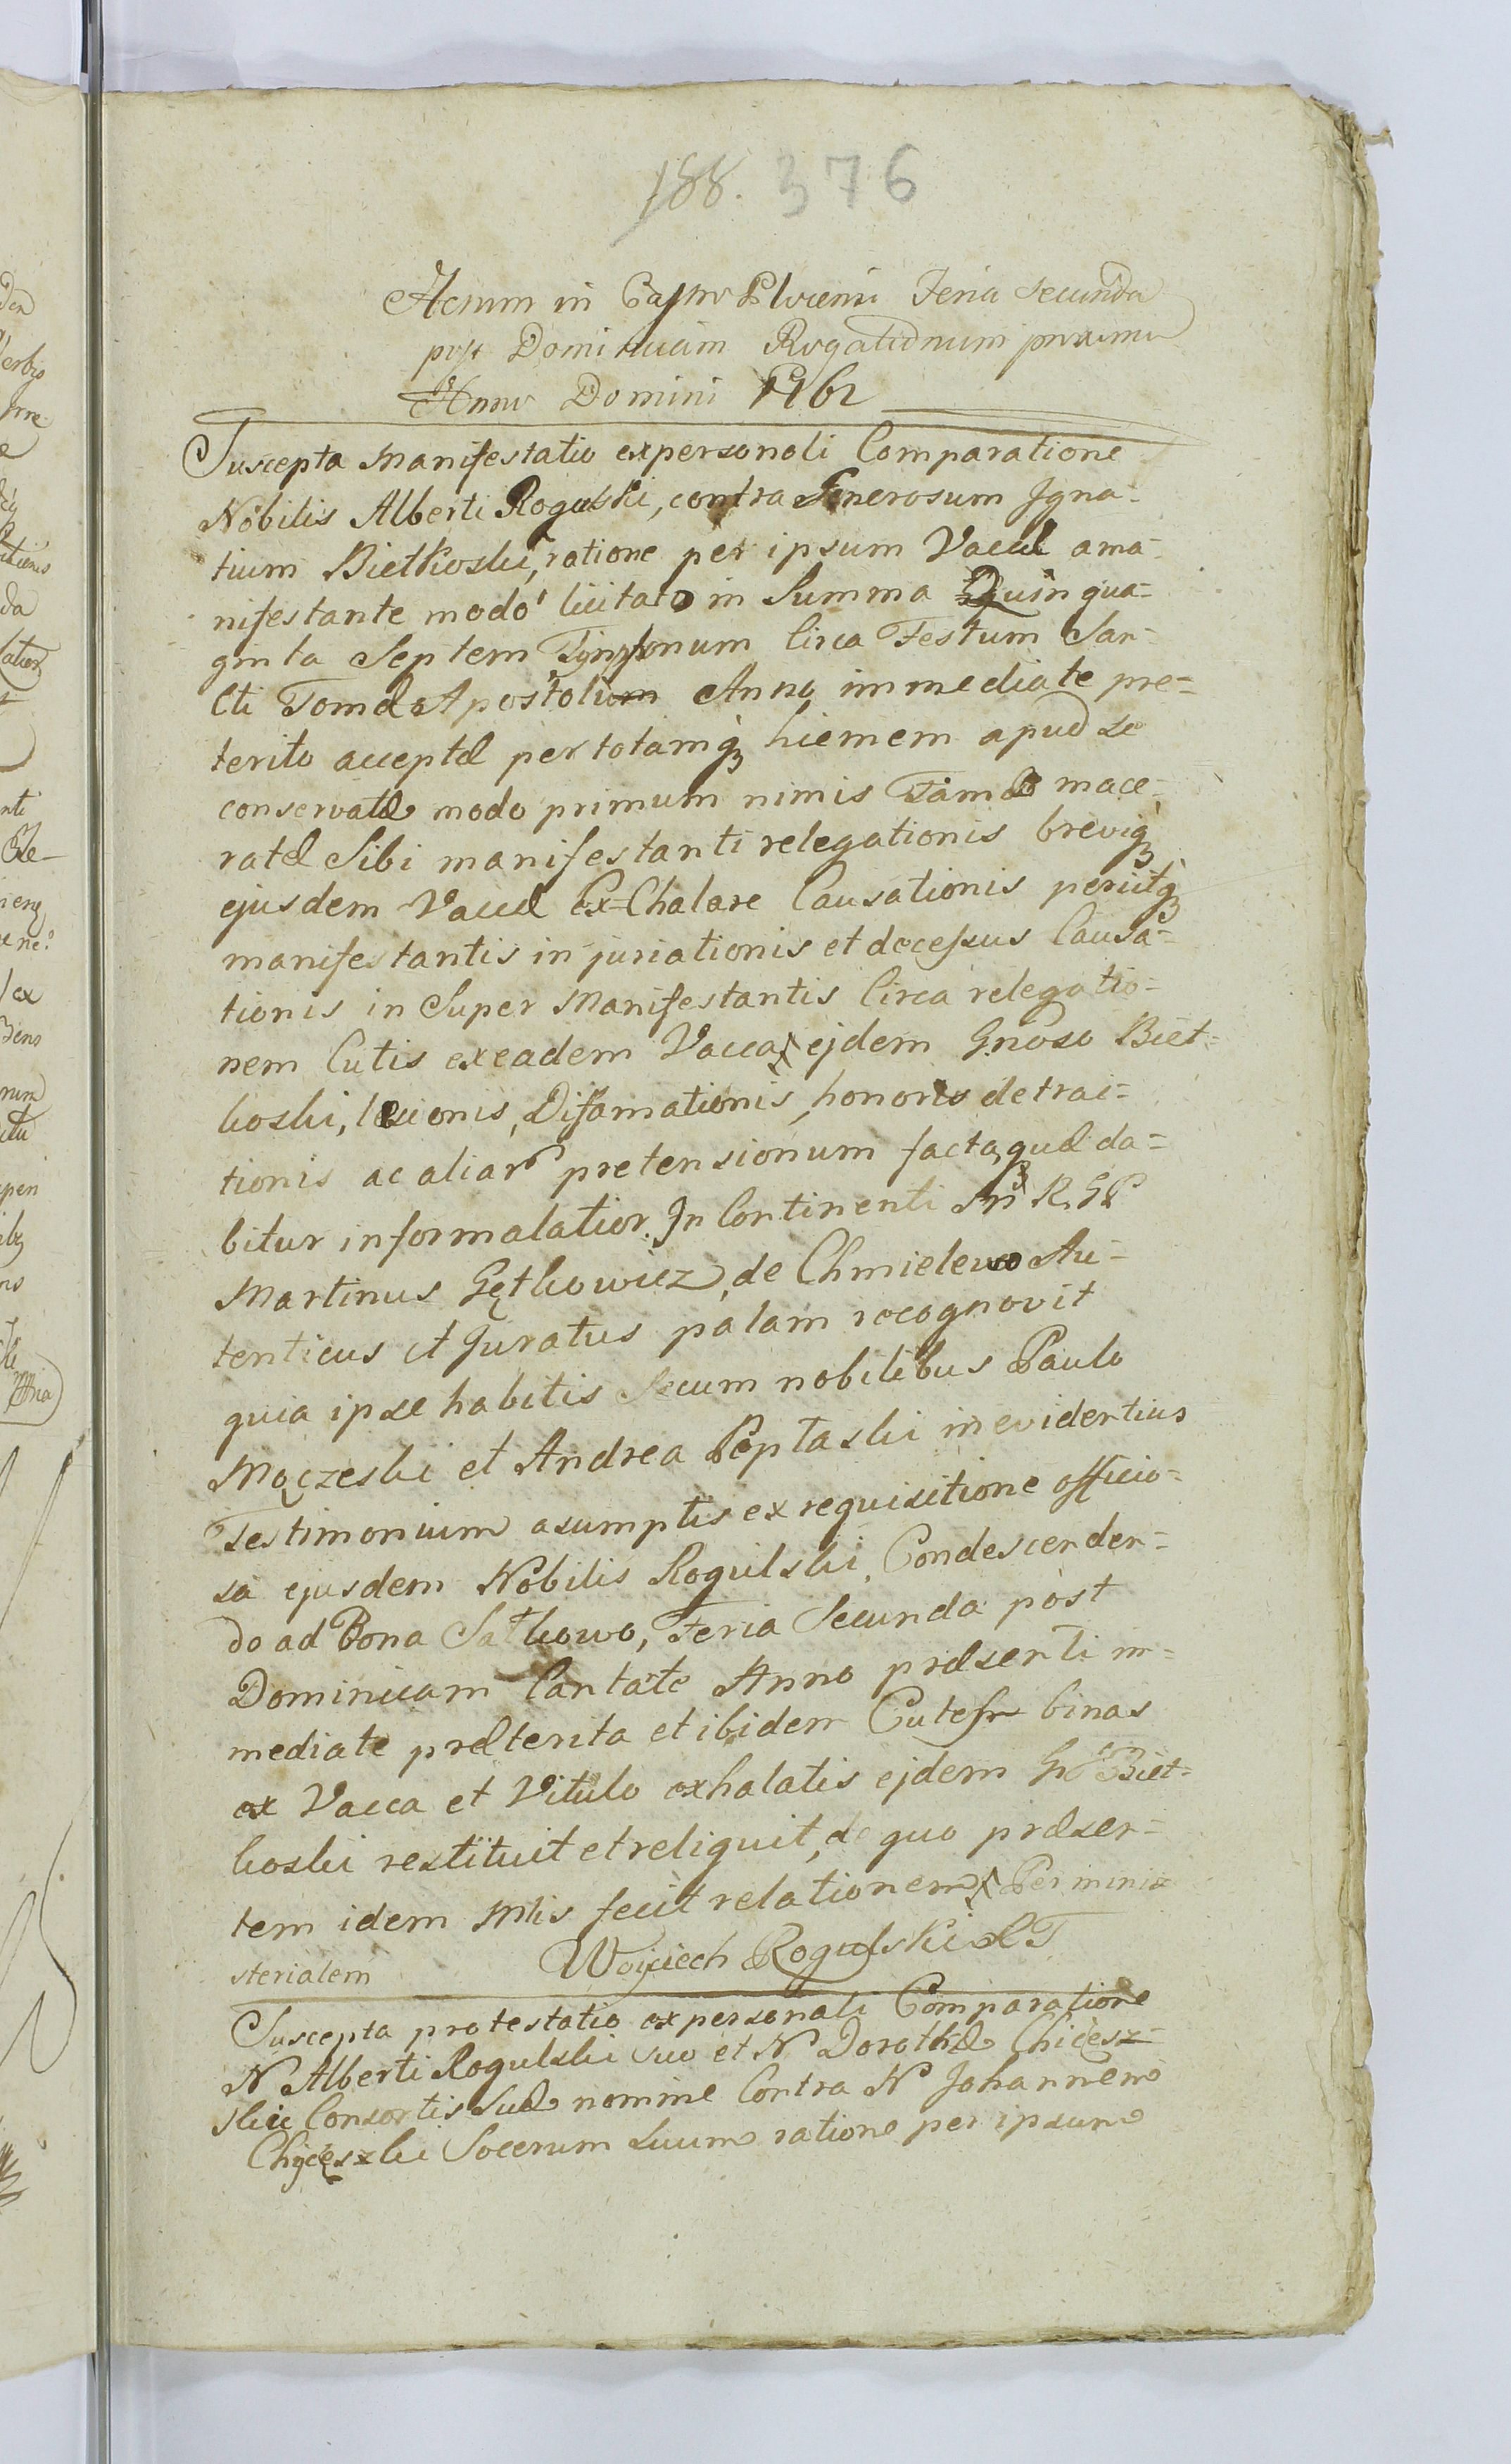 188. 376
Actum in Castro Plocensi Feria Secunda
post Dominicam Rogationum proxima
Anno Domini 1762
Suscepta Manifestatio ex personali Comparatione
Nobilis Alberti Rogulski, contra Generosum Igna-
tium Bietkoski, ratione per ipsum Vaccæ a ma-
nifestante modo licitato in Summa Quinqua-
ginta Septem Tynfonum Circa Festum San-
cti Tomæ Apostoli Anno immediate pre-
terito acceptæ per totamq3 hiemem apud se
conservatæ modo primum nimis Fame mace-
ratæ Sibi manifestanti relegationis breviq3
ejusdem Vaccæ Ex=Chalare Causationis periitq3
manifestantis injuriationis et decessus Causa-
tionis in Super Manifestantis Circa relegatio-
nem Cutis ex eadem Vacca ejdem Gnoso Biet-
koski, læsionis, Difamationis, honoris detrac-
tionis ac aliar pretensionum facta, quæ da-
bitur informa latior. In Continenti Mis R. G
Martinus Gętkowicz, de Chmielewo Au-
tenticus et Juratus palam recognovit
quia ipse habitis Secum nobilibus Paulo
Mączeski et Andrea Peptaski in evidentius
Testimonium asumptis ex requisitione officio-
sa ejusdem Nobilis Rogulski, Condescenden-
do ad Bona Satkowo, Feria Secunda post
Dominicam Cantate Anno præsenti im-
mediate præterita et ibidem Cutes binas
ex Vacca et Vitulo exhalatis ejdem Gso Biet-
koski restituit et reliquit, de quo præsen-
tem idem Mlis fecit relationem Per mini
sterialem Wojciech Rogulski
Suscepta protestatio ex personali Comparatione
N Alberti Rogulski suo et N Dorothæ Chicesz-
skic Consortis Suæ nomine Contra N Johannem
Chyceszki Socerum suum ratione per ipsum